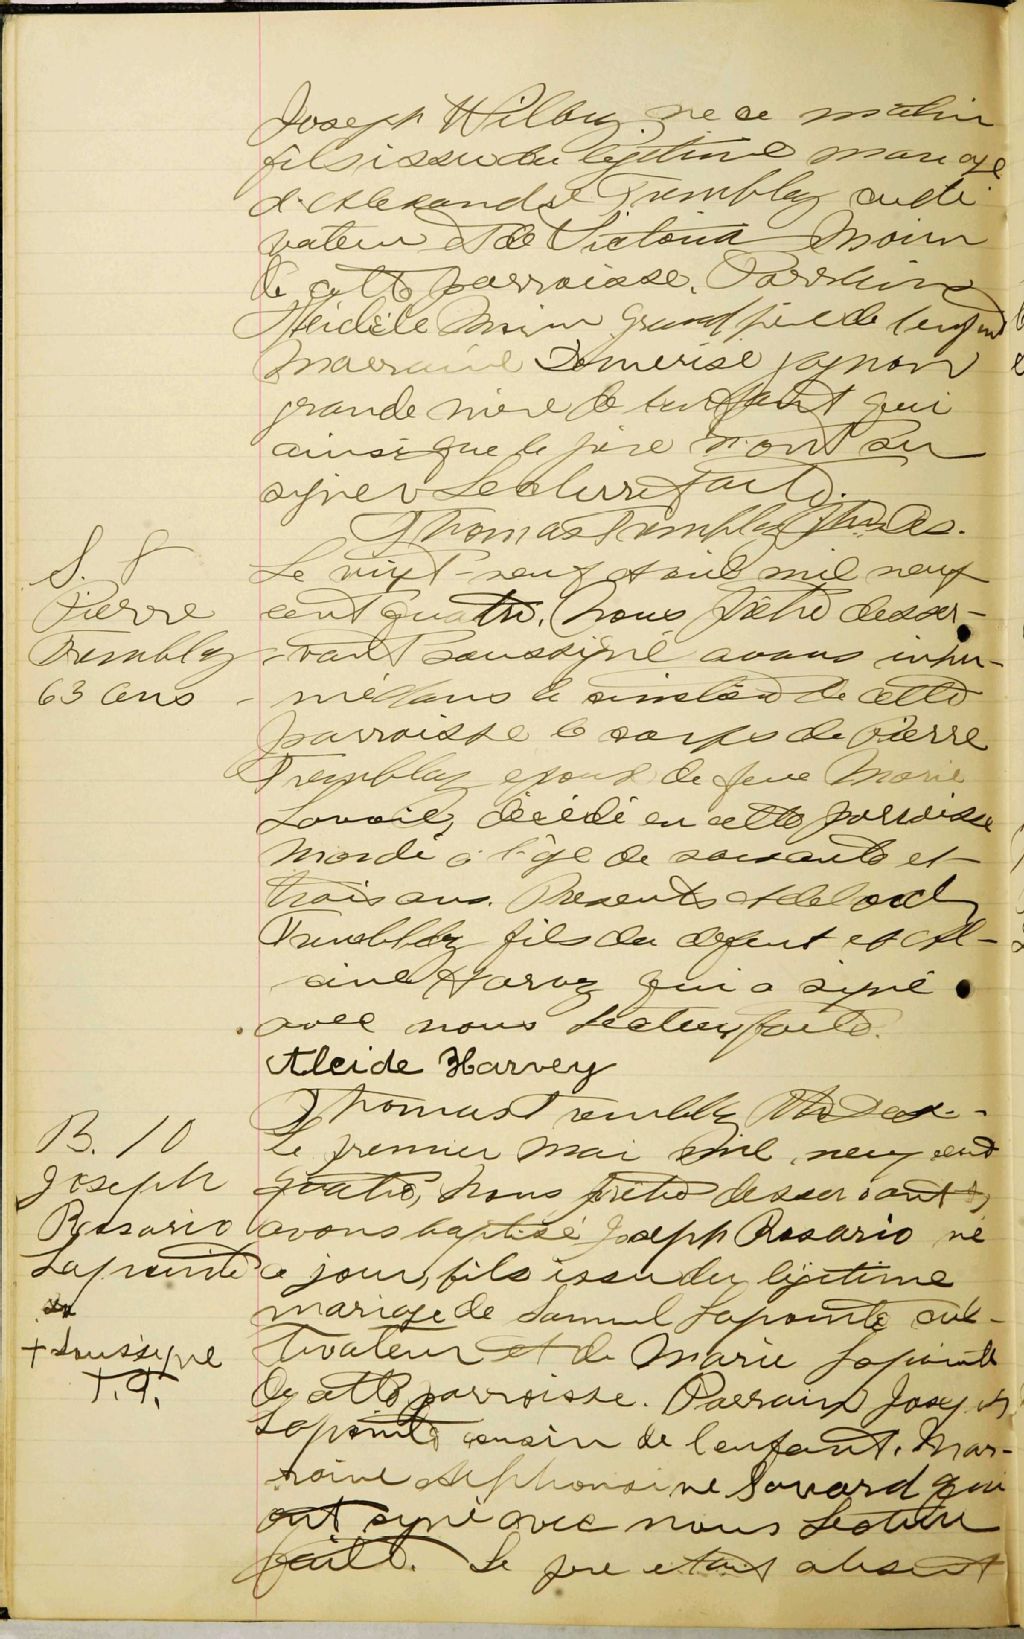 Joseph Wilby né ce matin
fils issu du légitime mariage
d'Alexandre Tremblay culti
vateur et de Victoria Morin
de cette parroisse. Parrain
Morin grand père de l'enfant
Marraine Demerise gagnon
grande mère de l'enfant qui
ainsi que le père n'ont su
signer Lecture faite.
Thomas Tremblay Ptre Des.
S. 8
Pierre
Tremblay
63 ans
Le vingt-neuf Avril mil neuf
cent quatre. Nous prêtre desser-
-vant soussigné avons inhu-
mé dans le cimetière de cette
parroisse le corps de Pierre
Tremblay epoux de feue Marie
Lavoie, décédé en cette parroisse
mardi à l'âge de soixante et
trois ans. Presents Adelard
Tremblay fils du defunt et Al-
cide Harvey qui a signé
avec nous Lecture faite.
Alcide Harvey
Thomas Tremblay Ptre Des.
B. 10
Joseph
Rosario
Lapointe
+ soussigné
T.T.
Le premier Mai mil neuf cent
quatre, Nous prêtre desservant +,
avons baptisé Joseph Rosario né
ce jour, fils issu du légitime
mariage de Samuel Lapointe cul-
tivateur et de Marie Lapointe
de cette parroisse. Parrain Joseph
Lapointe cousin de l'enfant. Mar-
raine Alphonsine Savard qui
ont signé avec nous Lecture
faite. Le père étant absent